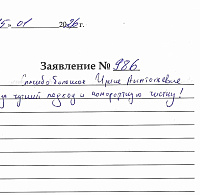 15 01 2026г.
Заявление № 986
Спасибо большое Ирине Анатольевне
за чуткий подход и комфортную чистку!